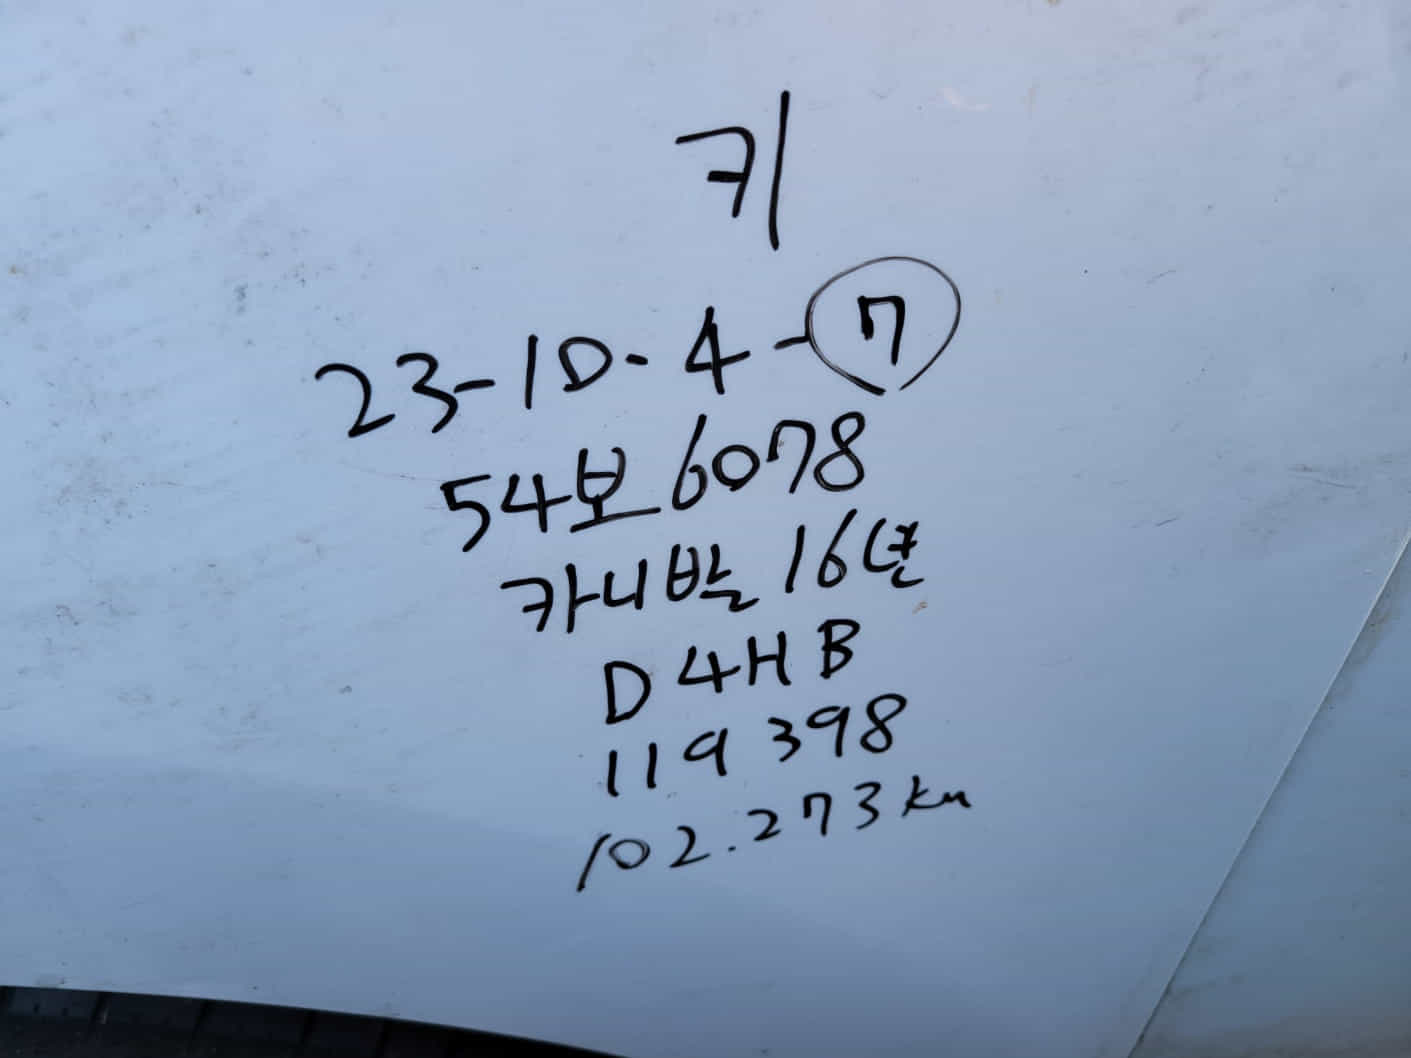 키
23-10-4-7
54보6078
카니발 16년
D4HB
119398
102.273km